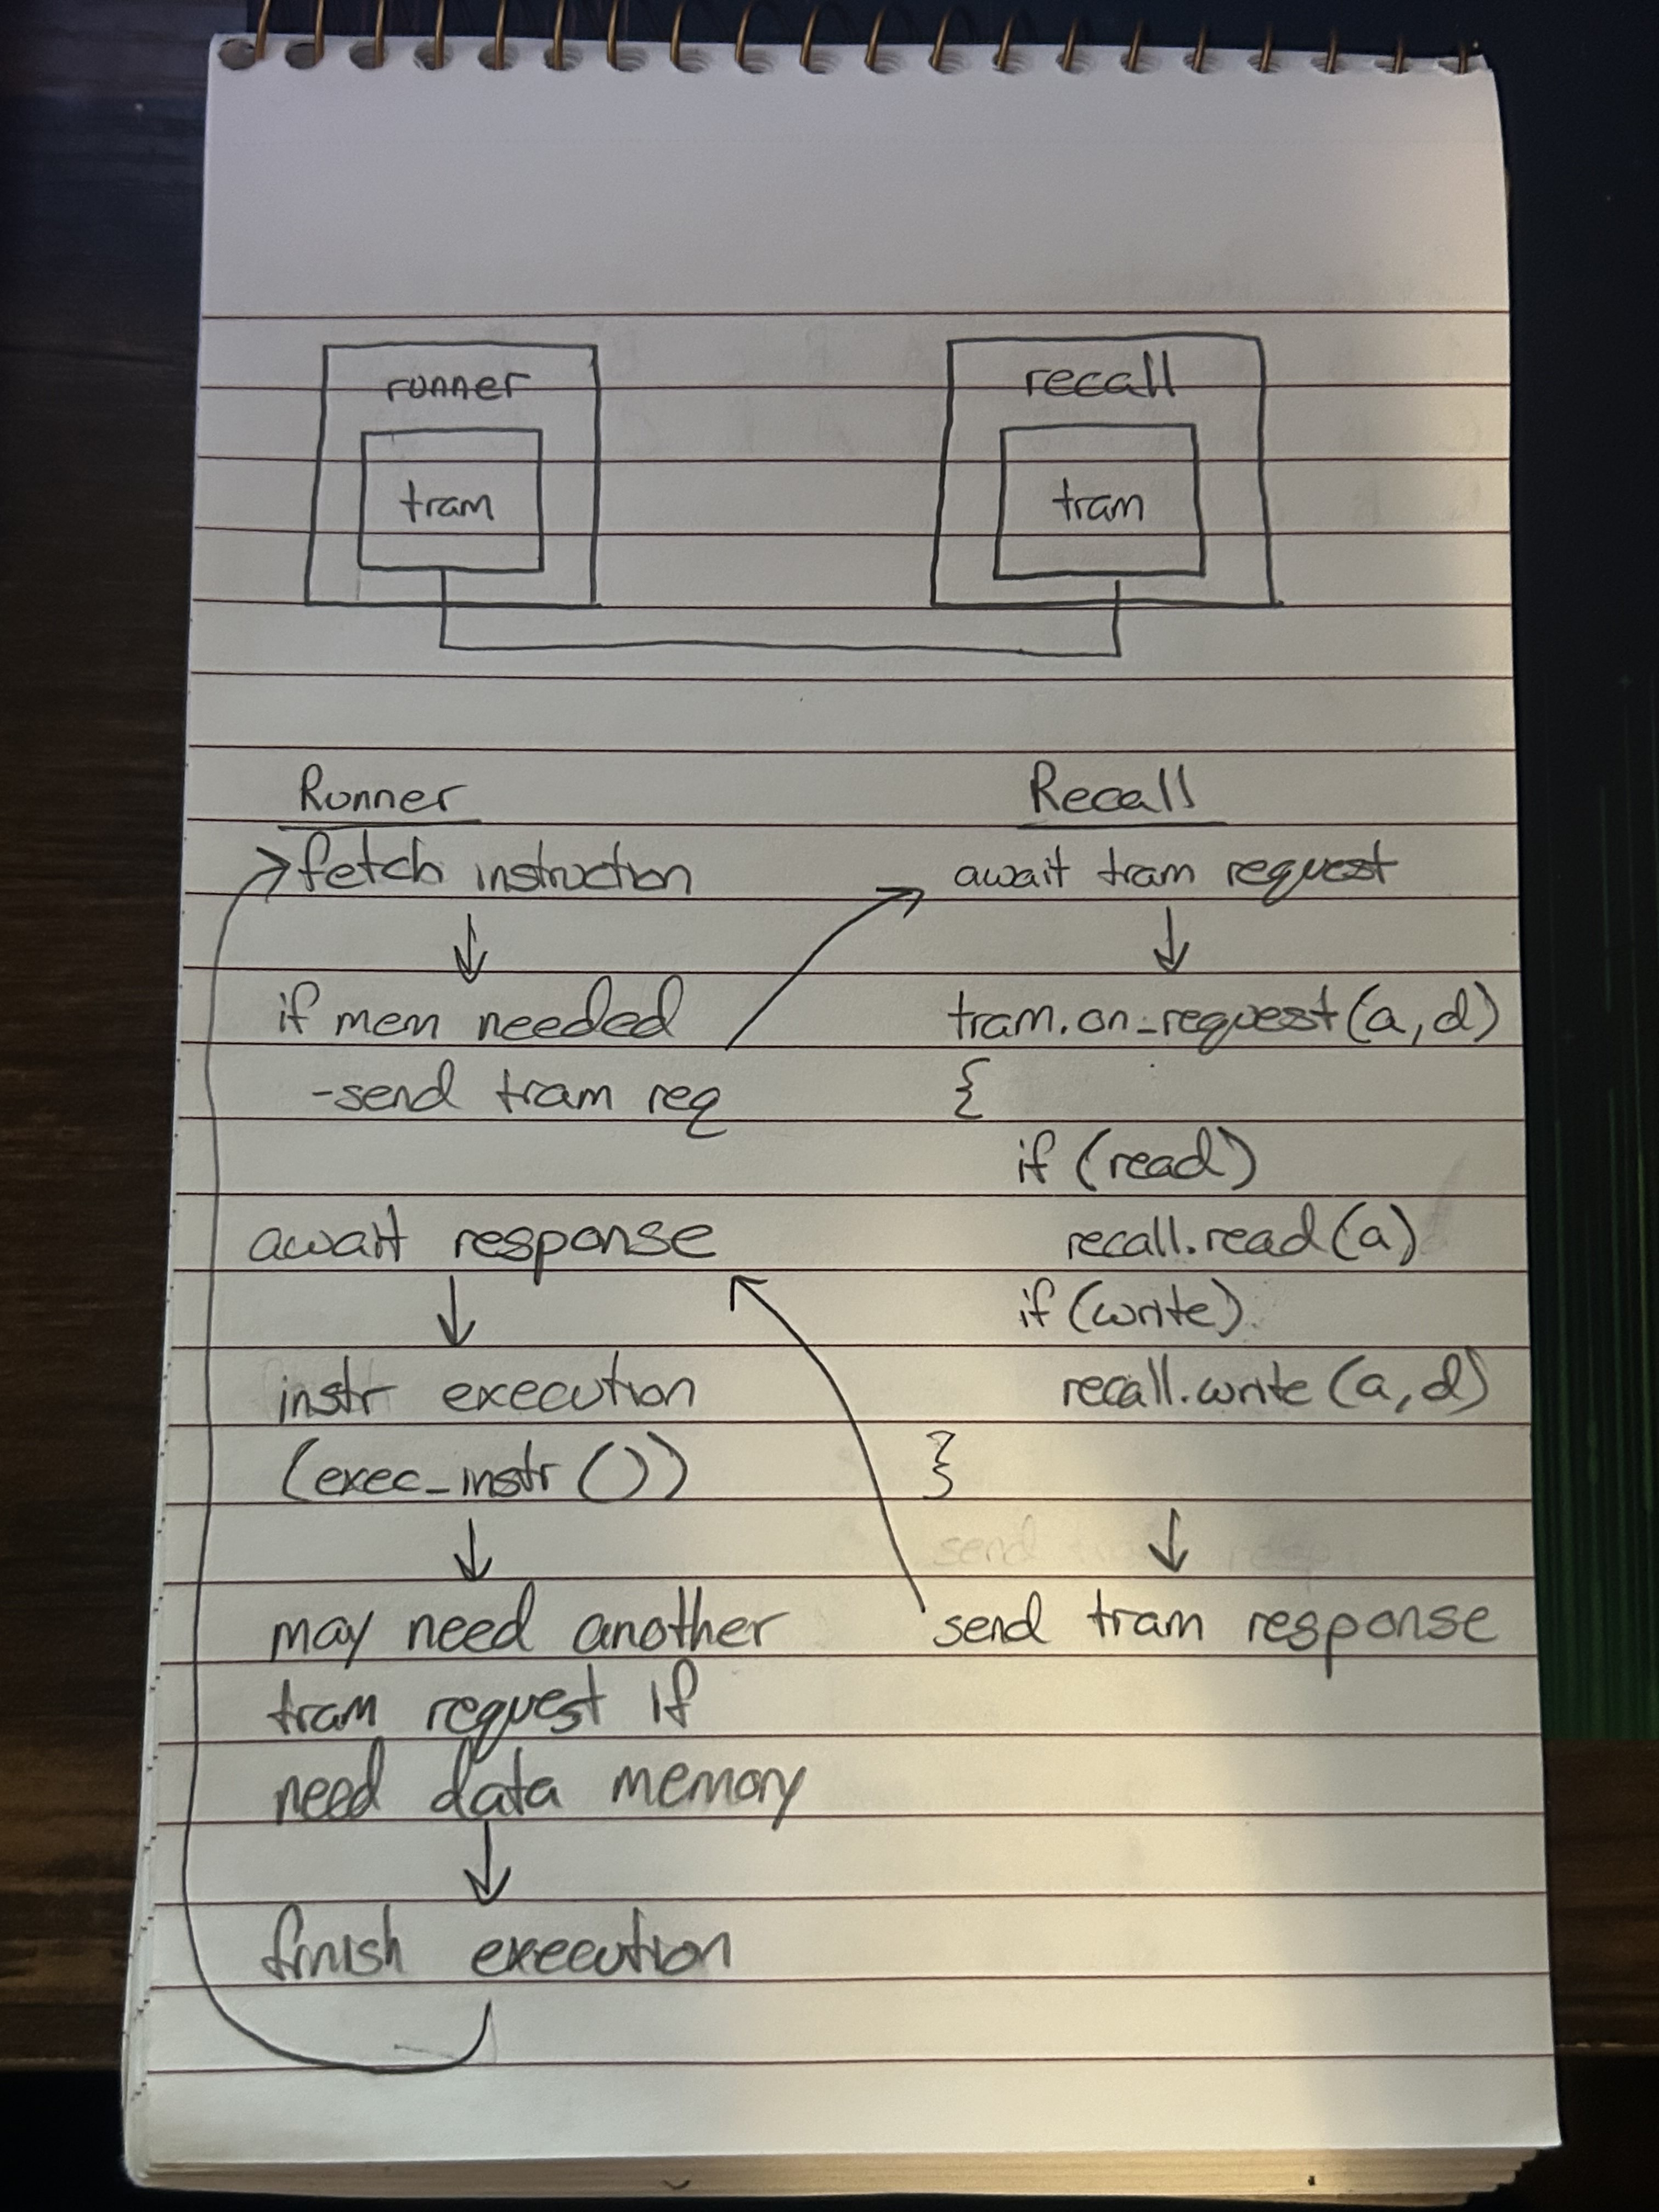 runner
tram
recall
tram
Runner
fetch instruction
if mem needed
-send tram req
await response
instr execution
(exec_instr())
may need another
tram request if
need data memory
finish execution
Recall
await tram request
tram.on_request(a,d)
{
if (read)
recall.read(a)
if (write)
recall.write(a,d)
}
send tram response